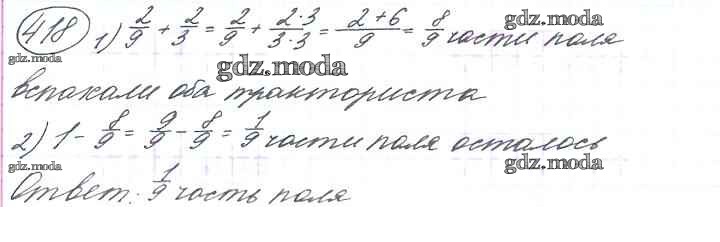 418 1) 2/9 + 2/3 = 2/9 + 2·3/3·3 = 2+6/9 = 8/9 части поля
gdz.moda
gdz.moda
gdz.moda
вспахали оба тракториста
2) 1 - 8/9 = 9/9 - 8/9 = 1/9 части поля осталось
gdz.moda
gdz.moda
Ответ: 1/9 часть поля